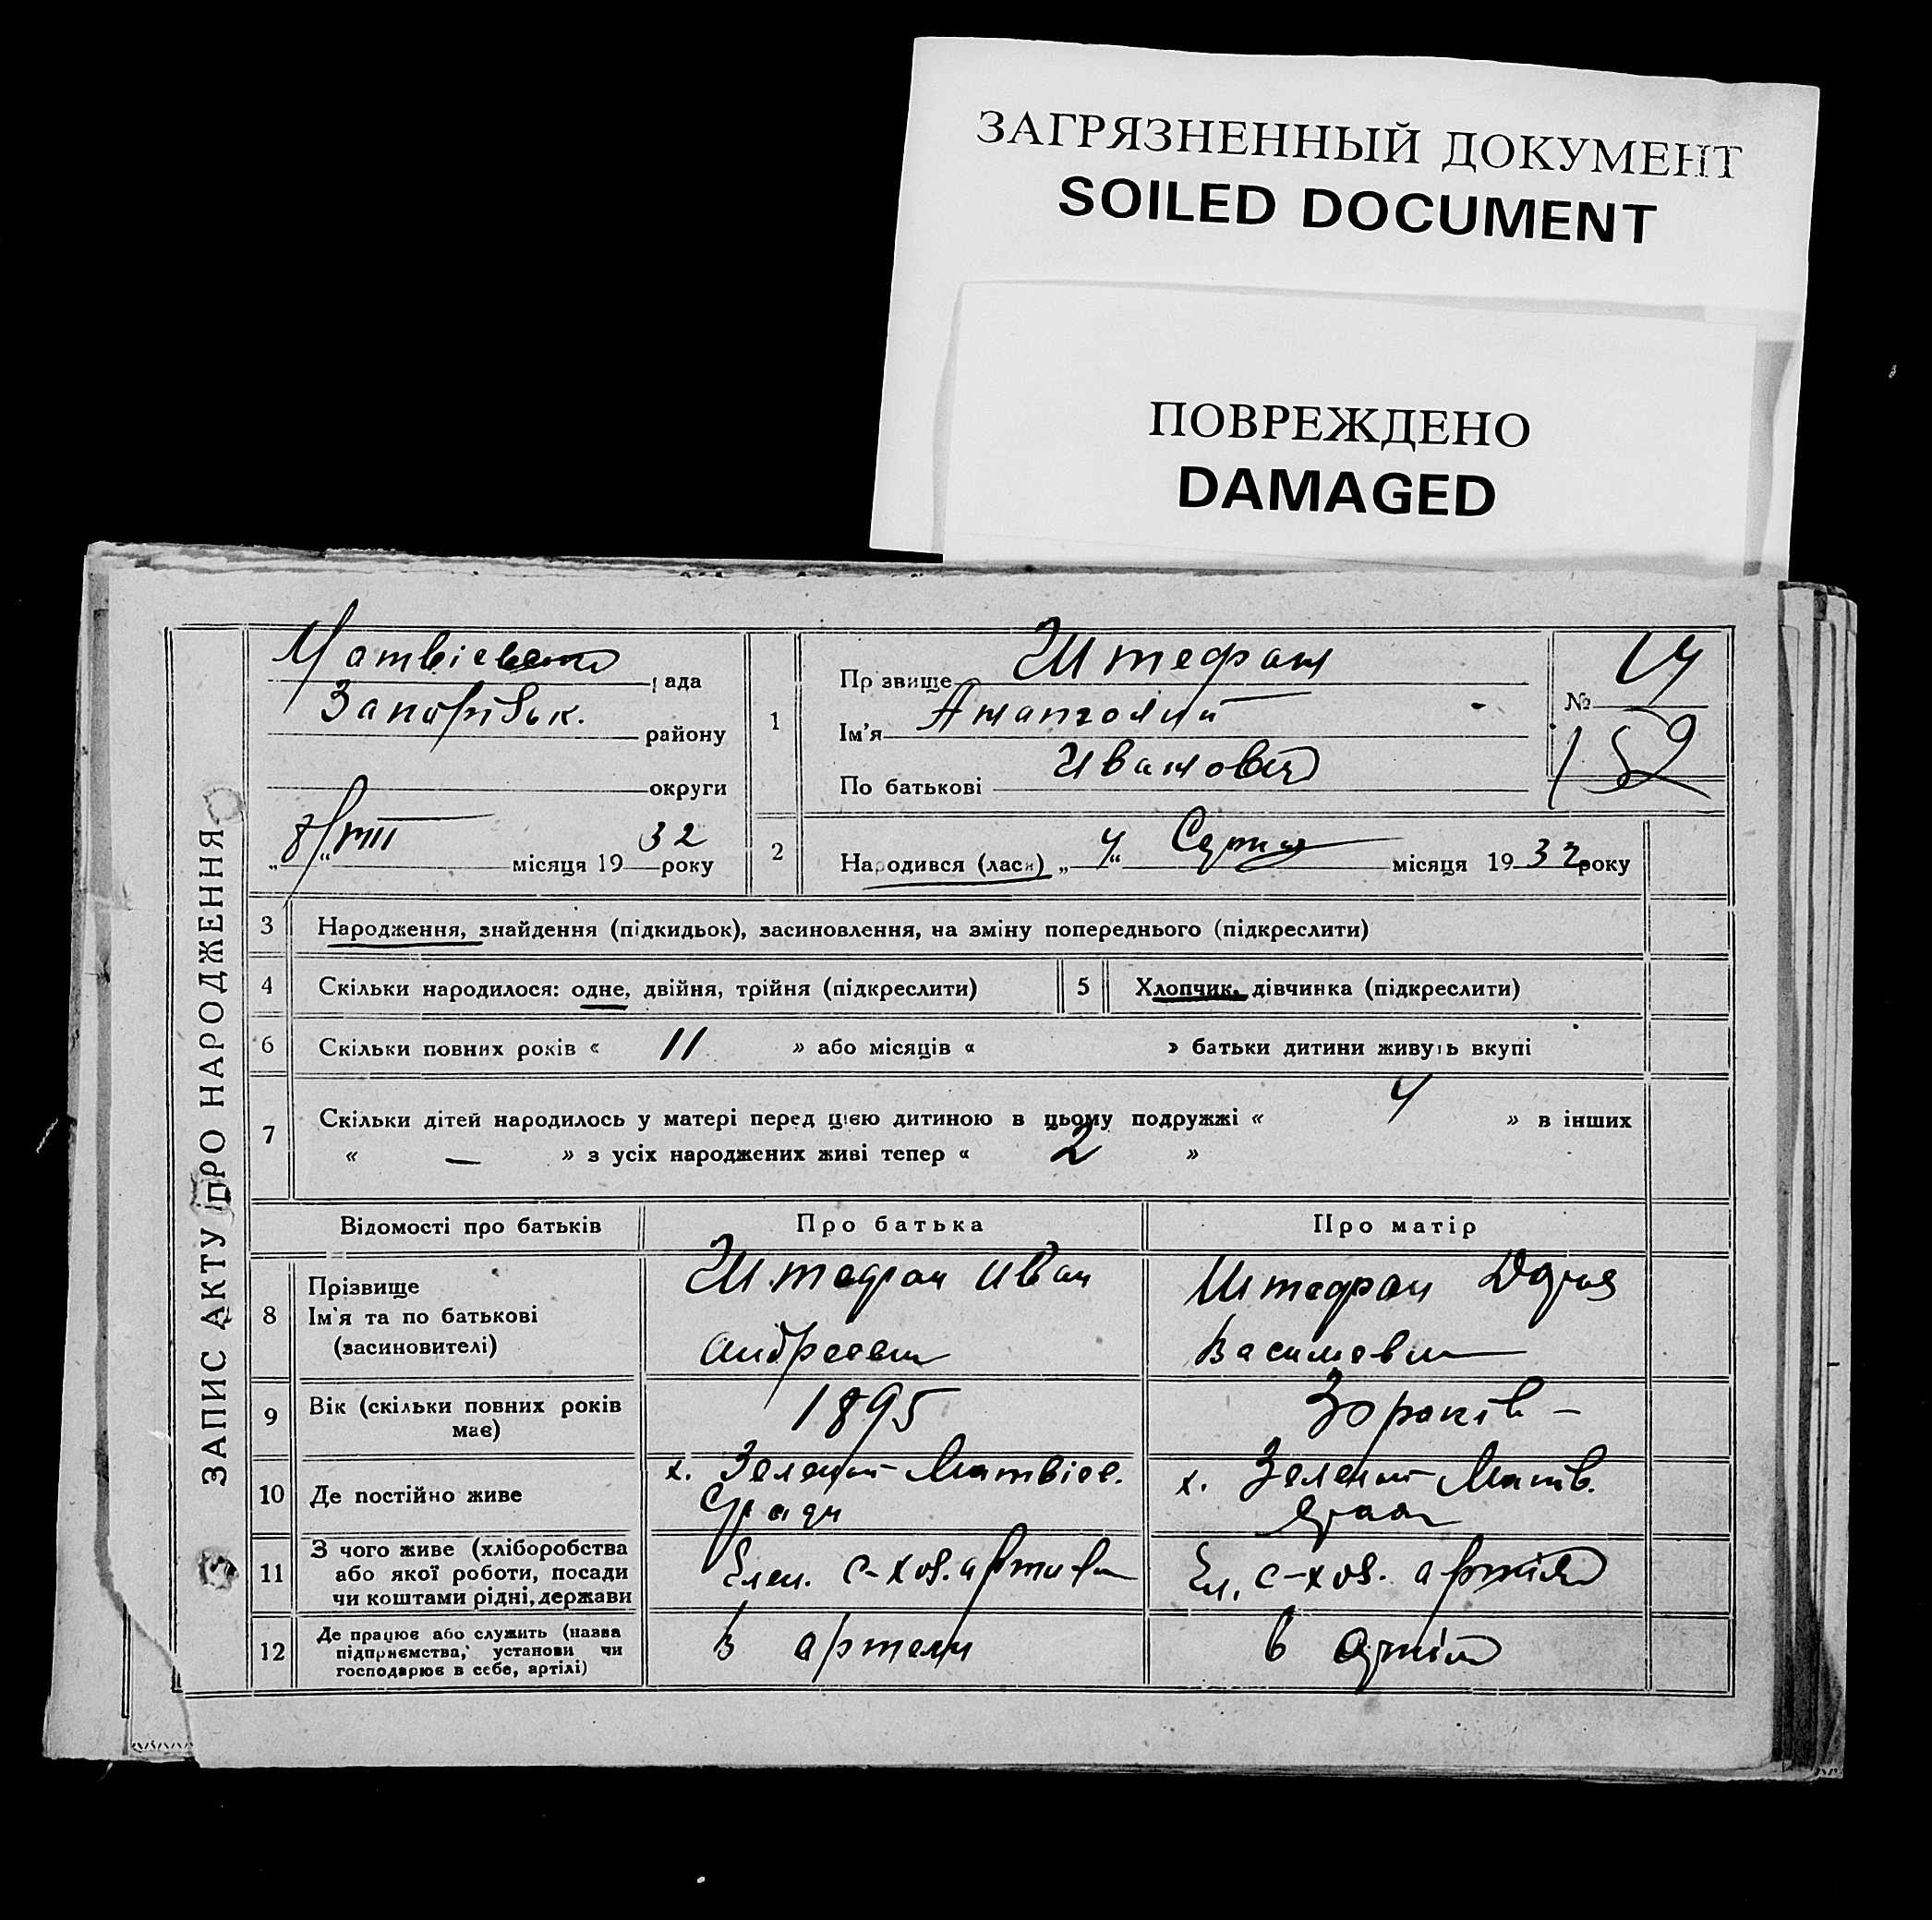 ЗАГРЯЗНЕННЫЙ ДОКУМЕНТ
SOILED DOCUMENT
ПОВРЕЖДЕНО
DAMAGED
ЗАПИС АКТУ ПРО НАРОДЖЕННЯ
рада
Запоріськ. району
округи
„8“ VIII місяця 1932 року
1
Прізвище Штефан
Ім'я Анатолий
По батькові Иванович
№ 14
152
2
Народився (лася) „4“ Серпня місяця 1932 року
3 Народження, знайдення (підкидьок), засиновлення, на зміну попереднього (підкреслити)
4 Скільки народилося: одне, двійня, трійня (підкреслити) 5 Хлопчик, дівчинка (підкреслити)
6 Скільки повних років « 11 » або місяців « » батьки дитини живуть вкупі
7 Скільки дітей народилось у матері перед цією дитиною в цьому подружжі « 4 » в інших
« — » з усіх народжених живі тепер « 2 »
Відомості про батьків Про батька Про матір
8 Прізвище
Ім'я та по батькові
(засиновителі)
Штефан Иван
Андреевич
Штефан Дарія
9 Вік (скільки повних років має)
1895
30 років –
10 Де постійно живе
х. Зелений Матвіев.
с/ради
х. Зелений Матв.
11 З чого живе (хліборобства
або якої роботи, посади
чи коштами рідні, держави
Член. с-хоз. артили
Чл. с-хоз. артілі
12 Де працює або служить (назва
підприємства, установи чи
господарює в себе, артілі)
В артели
в артілі